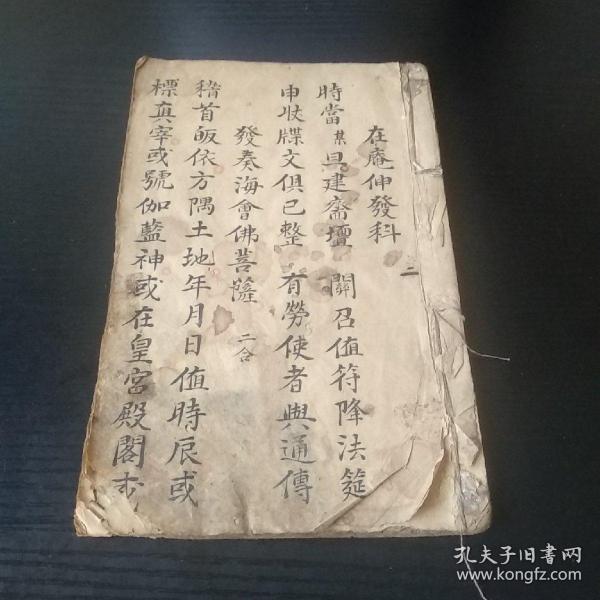 在庵伸發科
二
時當某旦建齋壇 關召值符降法筵
申狀牒文俱已整 有勞使者與通傳
發奏海會佛菩薩 二合
稽首皈依方隅土地年月日值時辰或
標真宰或號伽藍神或在皇宮殿閣或
孔夫子旧书网
www.kongfz.com